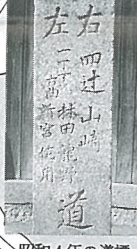 右 四辻 山崎
左 林田 龍野
新宮 佐用
道
昭和4年の道標